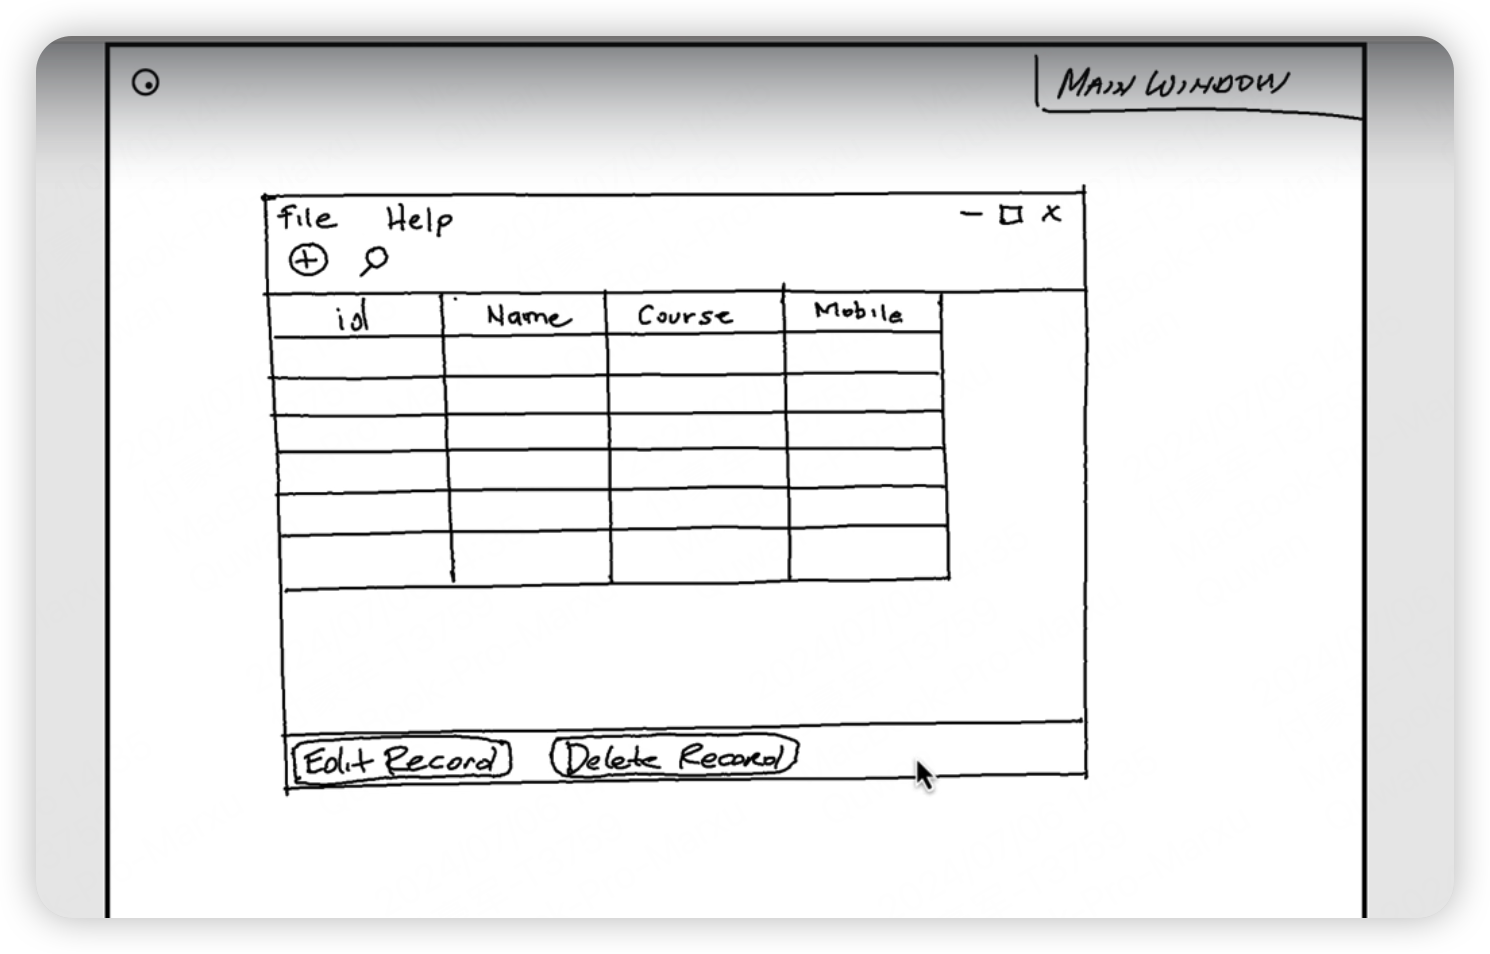 MAIN WINDOW
File Help
id Name Course Mobile
Edit Record Delete Record